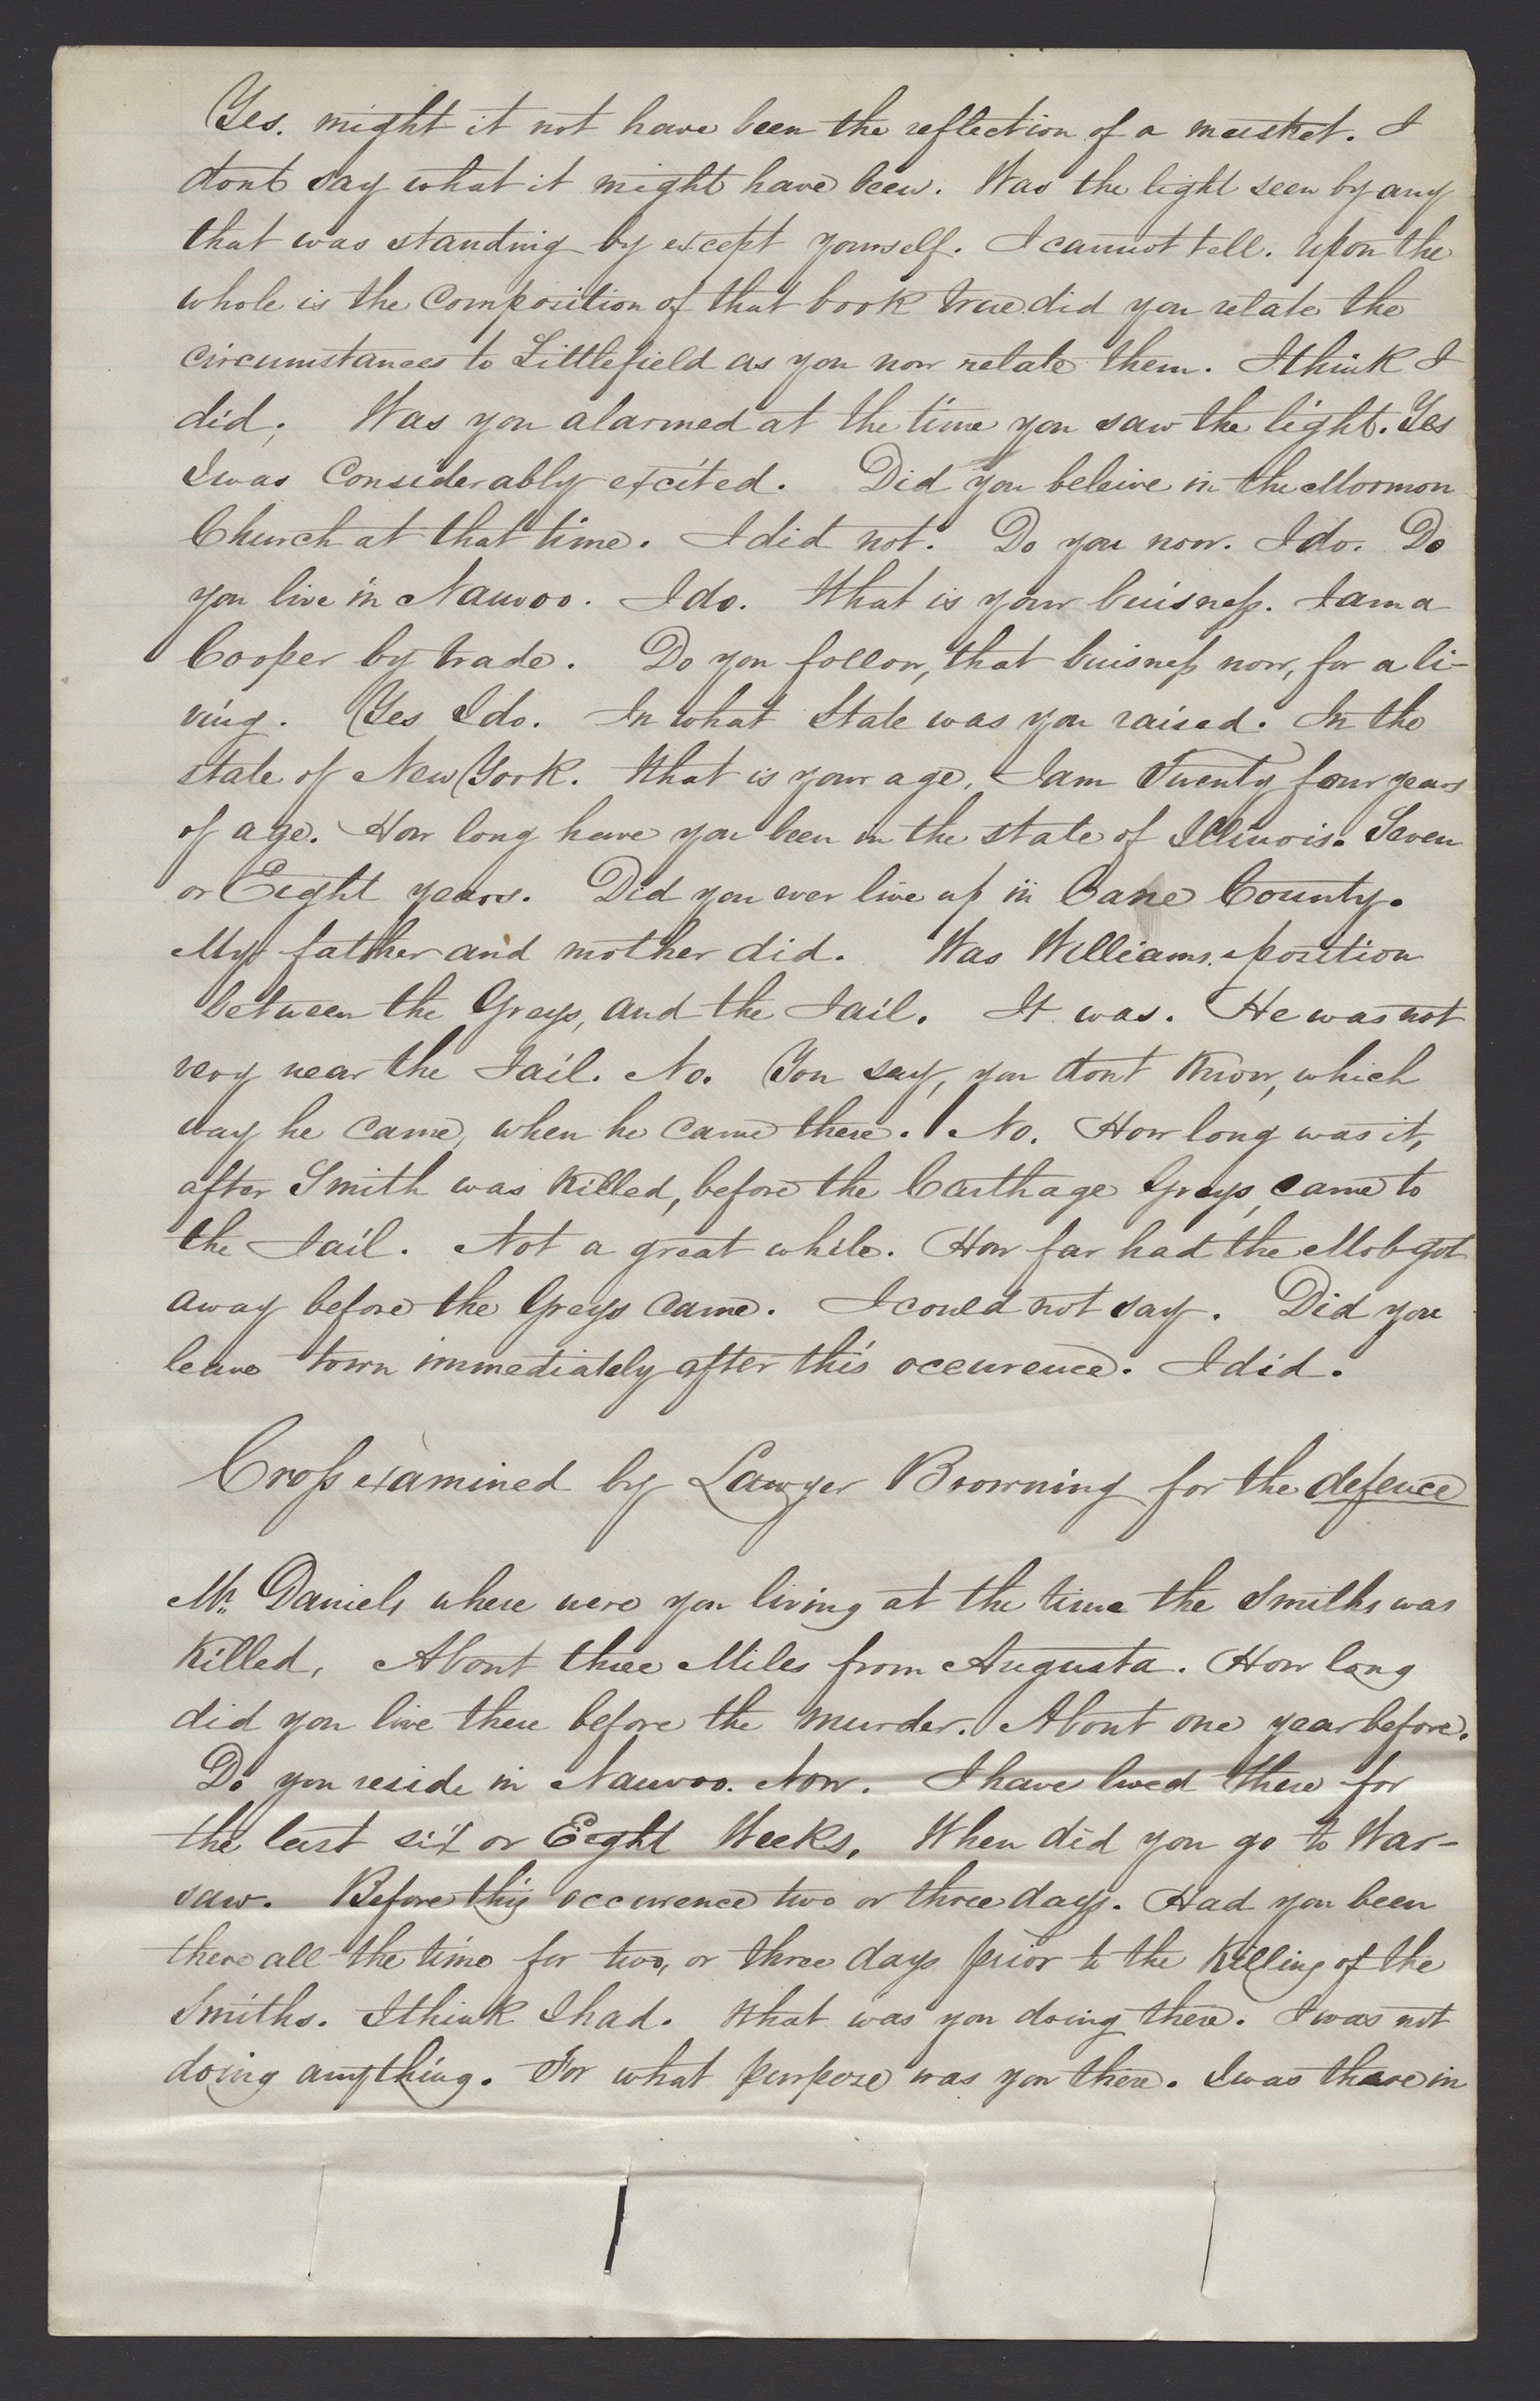 Yes. might it not have been the reflection of a musket. I
dont say what it might have been. Was the light seen by any
that was standing by except yourself. I cannot tell. Upon the
whole is the Composition of that book true. did you relate the
circumstances to Littlefield as you now relate them. I think I
did. Was you alarmed at the time you saw the light. Yes
I was Considerably excited. Did you beleive in the Mormon
Church at that time. I did not. Do you now. I do. Do
you live in Nauvoo. I do. What is your buisness. I am a
Cooper by trade. Do you follow, that buisness now, for a li-
ving. Yes I do. In what State was you raised. In the
state of New York. What is your age. I am Twenty four years
of age. How long have you been in the state of Illinois. Seven
or Eight years. Did you ever live up in Cane County.
My father and mother did. Was Williams position
between the Greys, and the Jail. It was. He was not
very near the Jail. No. You say, you dont Know, which
way he came, when he came there. No. How long was it,
after Smith was Killed, before the Carthage Greys, came to
the Jail. Not a great while. How far had the Mob got
away before the Greys Came. I could not say. Did you
leave town immediately after this occurence. I did.
Cross examined by Lawyer Browning for the defence
Mr. Daniels where were you living at the time the Smiths was
Killed, About three Miles from Augusta. How long
did you live there before the murder. About one year before.
Do you reside in Nauvoo. Now. I have lived there for
the last six or Eight Weeks. When did you go to War-
saw. Before this occurence two or three days. Had you been
there all the time for two, or three days prior to the Killing of the
Smiths. I think I had. What was you doing there. I was not
doing anything. For what purpose was you there. I was there in